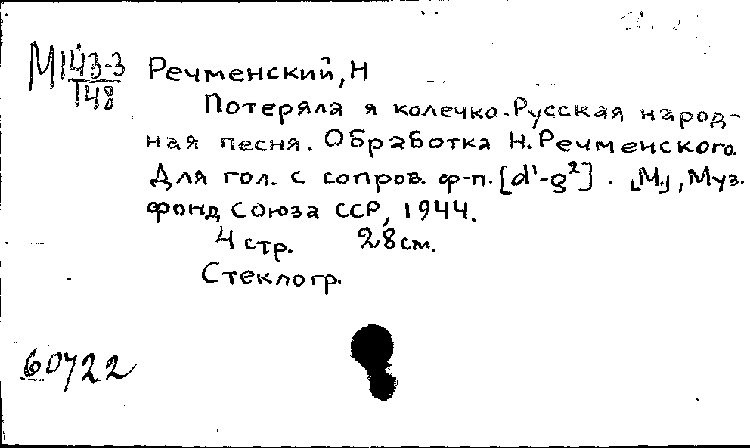 М143-3
148
Речменский, Н
Потеряла я колечко. Русская народ-
ная песня. Обработка Н. Речменского.
Для гол. с сопров. ф-п. [d¹-g²]. [М.], Муз.
фонд Союза ССР, 1944.
4 стр. 28 см.
Стеклогр.
60722